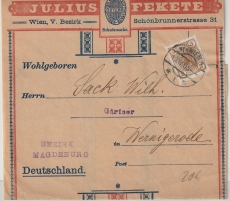 JULIUS FEKETE
Wien, V. Bezirk
Schutzmarke.
Schönbrunnerstrasse 31
Wohlgeboren
Herrn Sack Wilh.
Gärtner
in Wernigerode
BEZIRK
MAGDEBURG
Post
Deutschland.